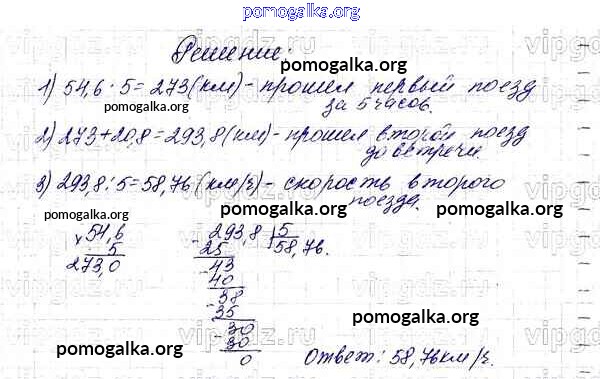 pomogalka.org
Решение:
pomogalka.org
1) 54,6 · 5 = 273 (км) - прошел первый поезд
за 5 часов.
pomogalka.org
2) 273 + 20,8 = 293,8 (км) - прошел второй поезд
до встречи.
pomogalka.org
3) 293,8 : 5 = 58,76 (км/ч) - скорость второго
поезда.
pomogalka.org
pomogalka.org
pomogalka.org
× 54,6
5
273,0
- 293,8 | 5
25 58,76.
- 43
40
- 38
35
- 30
30
0
pomogalka.org
pomogalka.org
Ответ: 58,76 км/ч.
pomogalka.org
vipgdz.ru